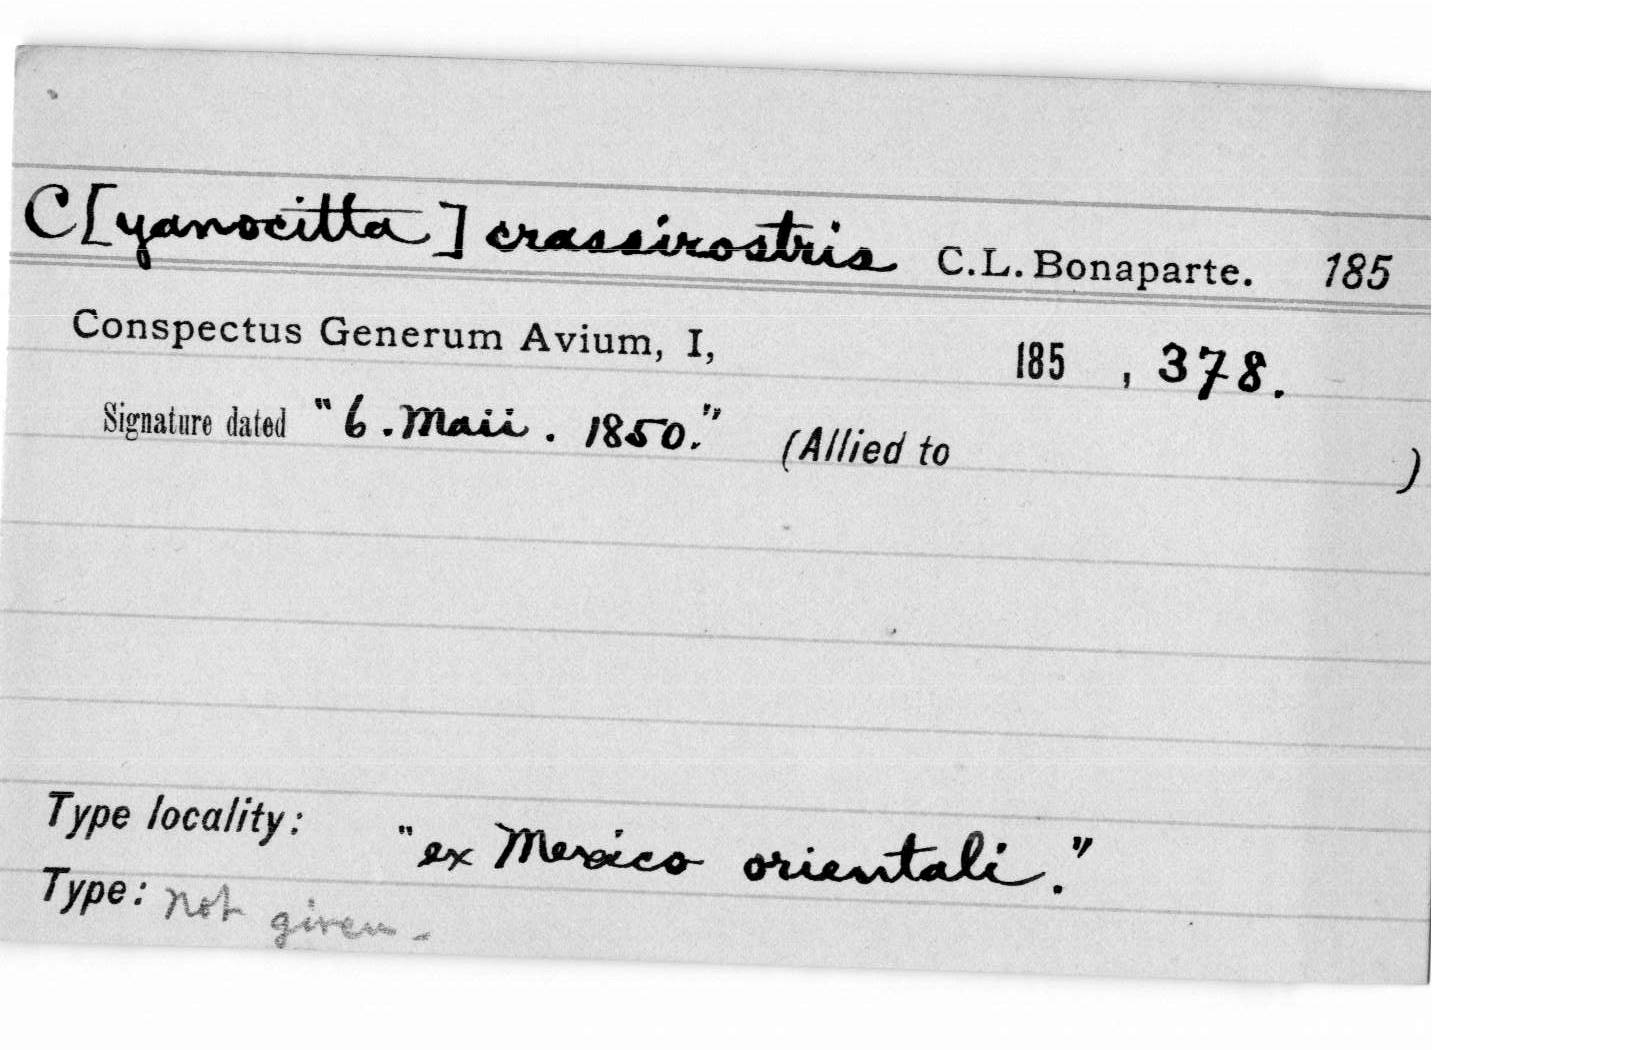 C[yanocitta] crassirostris C.L. Bonaparte. 185
Conspectus Generum Avium, I, 185 , 378.
Signature dated "6. Maii. 1850." (Allied to )
Type locality: "ex Mexico orientali."
Type: not given.